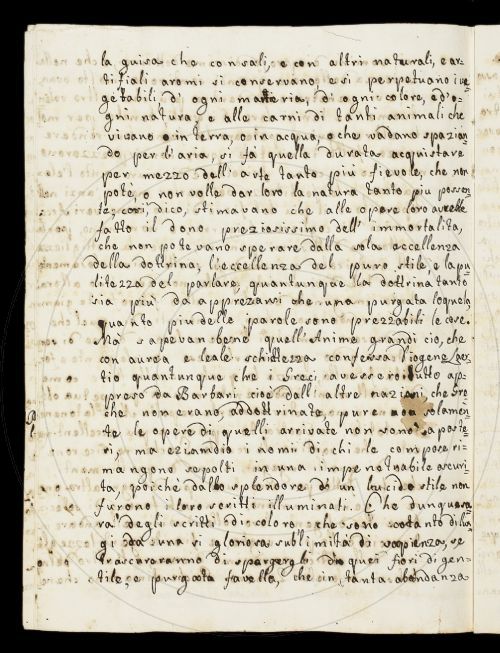 la guisa che con sali, e con altri naturali, e ar-
tifiziali aromi si conservano, e si perpetuano i ve-
getabili d'ogni materia, d'ogni colore, e d'o-
gni natura, e alle carni di tanti animali che
vivano o in terra, o in acqua, o che vadano spazian-
do per l'aria, si fà quella durata acquistare
per mezzo dell'arte tanto più fievole, che non
potè, o non volle dar loro la natura tanto più possen-
te; così, dico, stimavano che alle opere loro avrebbe
fatto il dono preziosissimo dell'immortalità,
che non potevano sperare dalla sola eccellenza
della dottrina, l'eccellenza del puro stile, e la pu-
litezza del parlare, quantunque la dottrina tanto
sia più da apprezzarsi che una purgata loquela,
quanto più delle parole sono prezzabili le cose.
Ma sapevan bene quell'Anime grandi ciò, che
con aurea e leale schiettezza confessa Diogene Laer-
tio quantunque che i Greci avessero tutto ap-
preso da Barbari cioè dall'altre nazioni, che Gre-
che non erano, addottrinate, pure non solamen-
te le opere di quelli arrivate non sono a poste-
ri, ma eziandio i nomi di chi le compose ri-
mangono sepolti in una impenetrabile oscuri-
tà, poichè dallo splendore d'un lucido stile non
furono i loro scritti illuminati. Che dunque sa-
rà degli scritti di coloro che sono cotanto di lun-
gi da una sì gloriosa sublimità di sapienza, se
trascureranno di spargergli di quei fiori di gen-
tile, e purgata favella, che in tanta abondanza